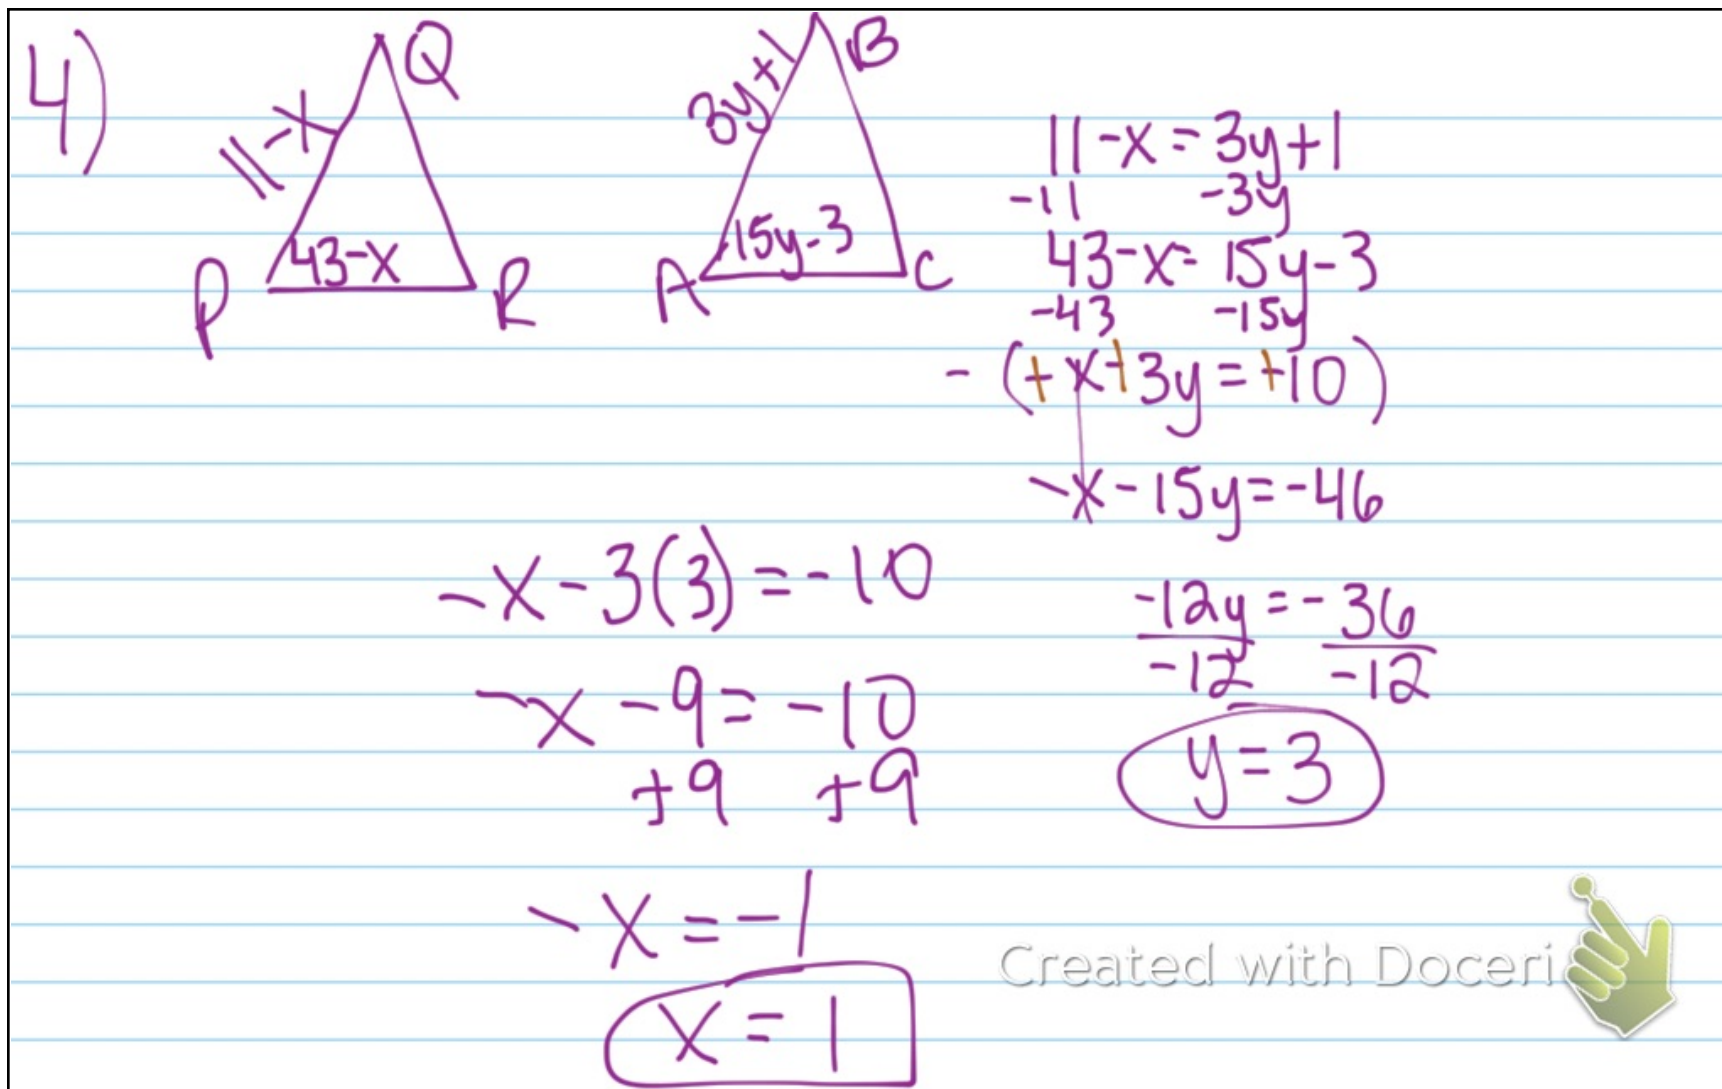 4)
Q
11-x
43-x
P
R
B
3y+1
15y-3
A
C
11-x=3y+1
-11 -3y
43-x=15y-3
-43 -15y
-(+x+3y=+10)
-x-15y=-46
-12y=-36
-12 -12
y=3
-x-3(3)=-10
-x-9=-10
+9 +9
-x=-1
x=1
Created with Doceri